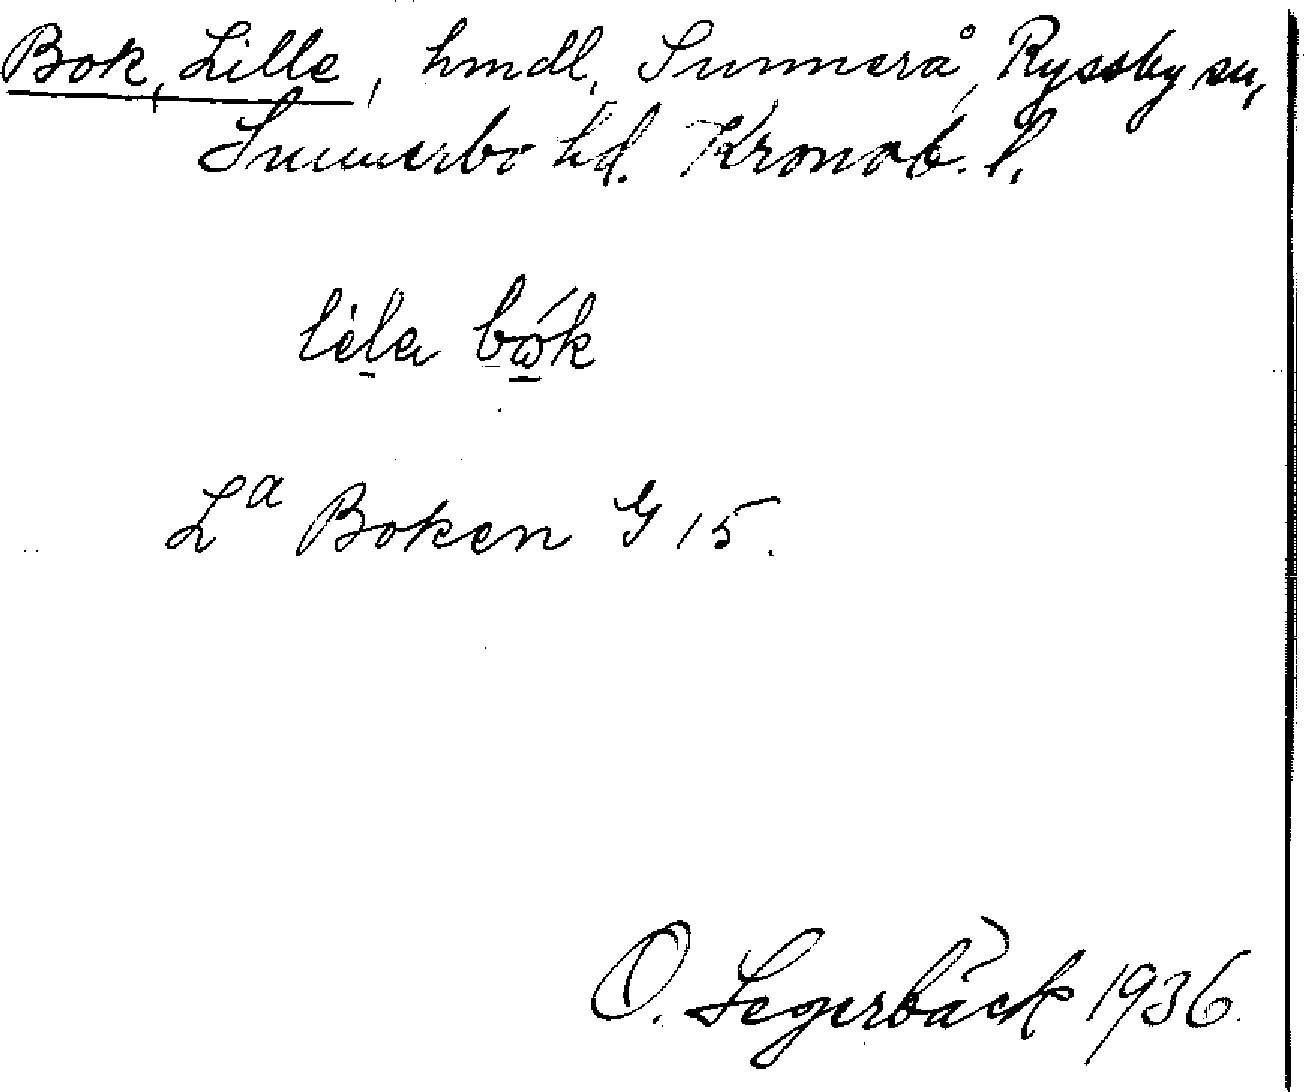 Bok, Lille, hmdl, Sunnerå, Ryssby sn,
Sunnerbo hd. Kronob. l.
lèla bók
La Boken G 15.
O. Segerbäck 1936.